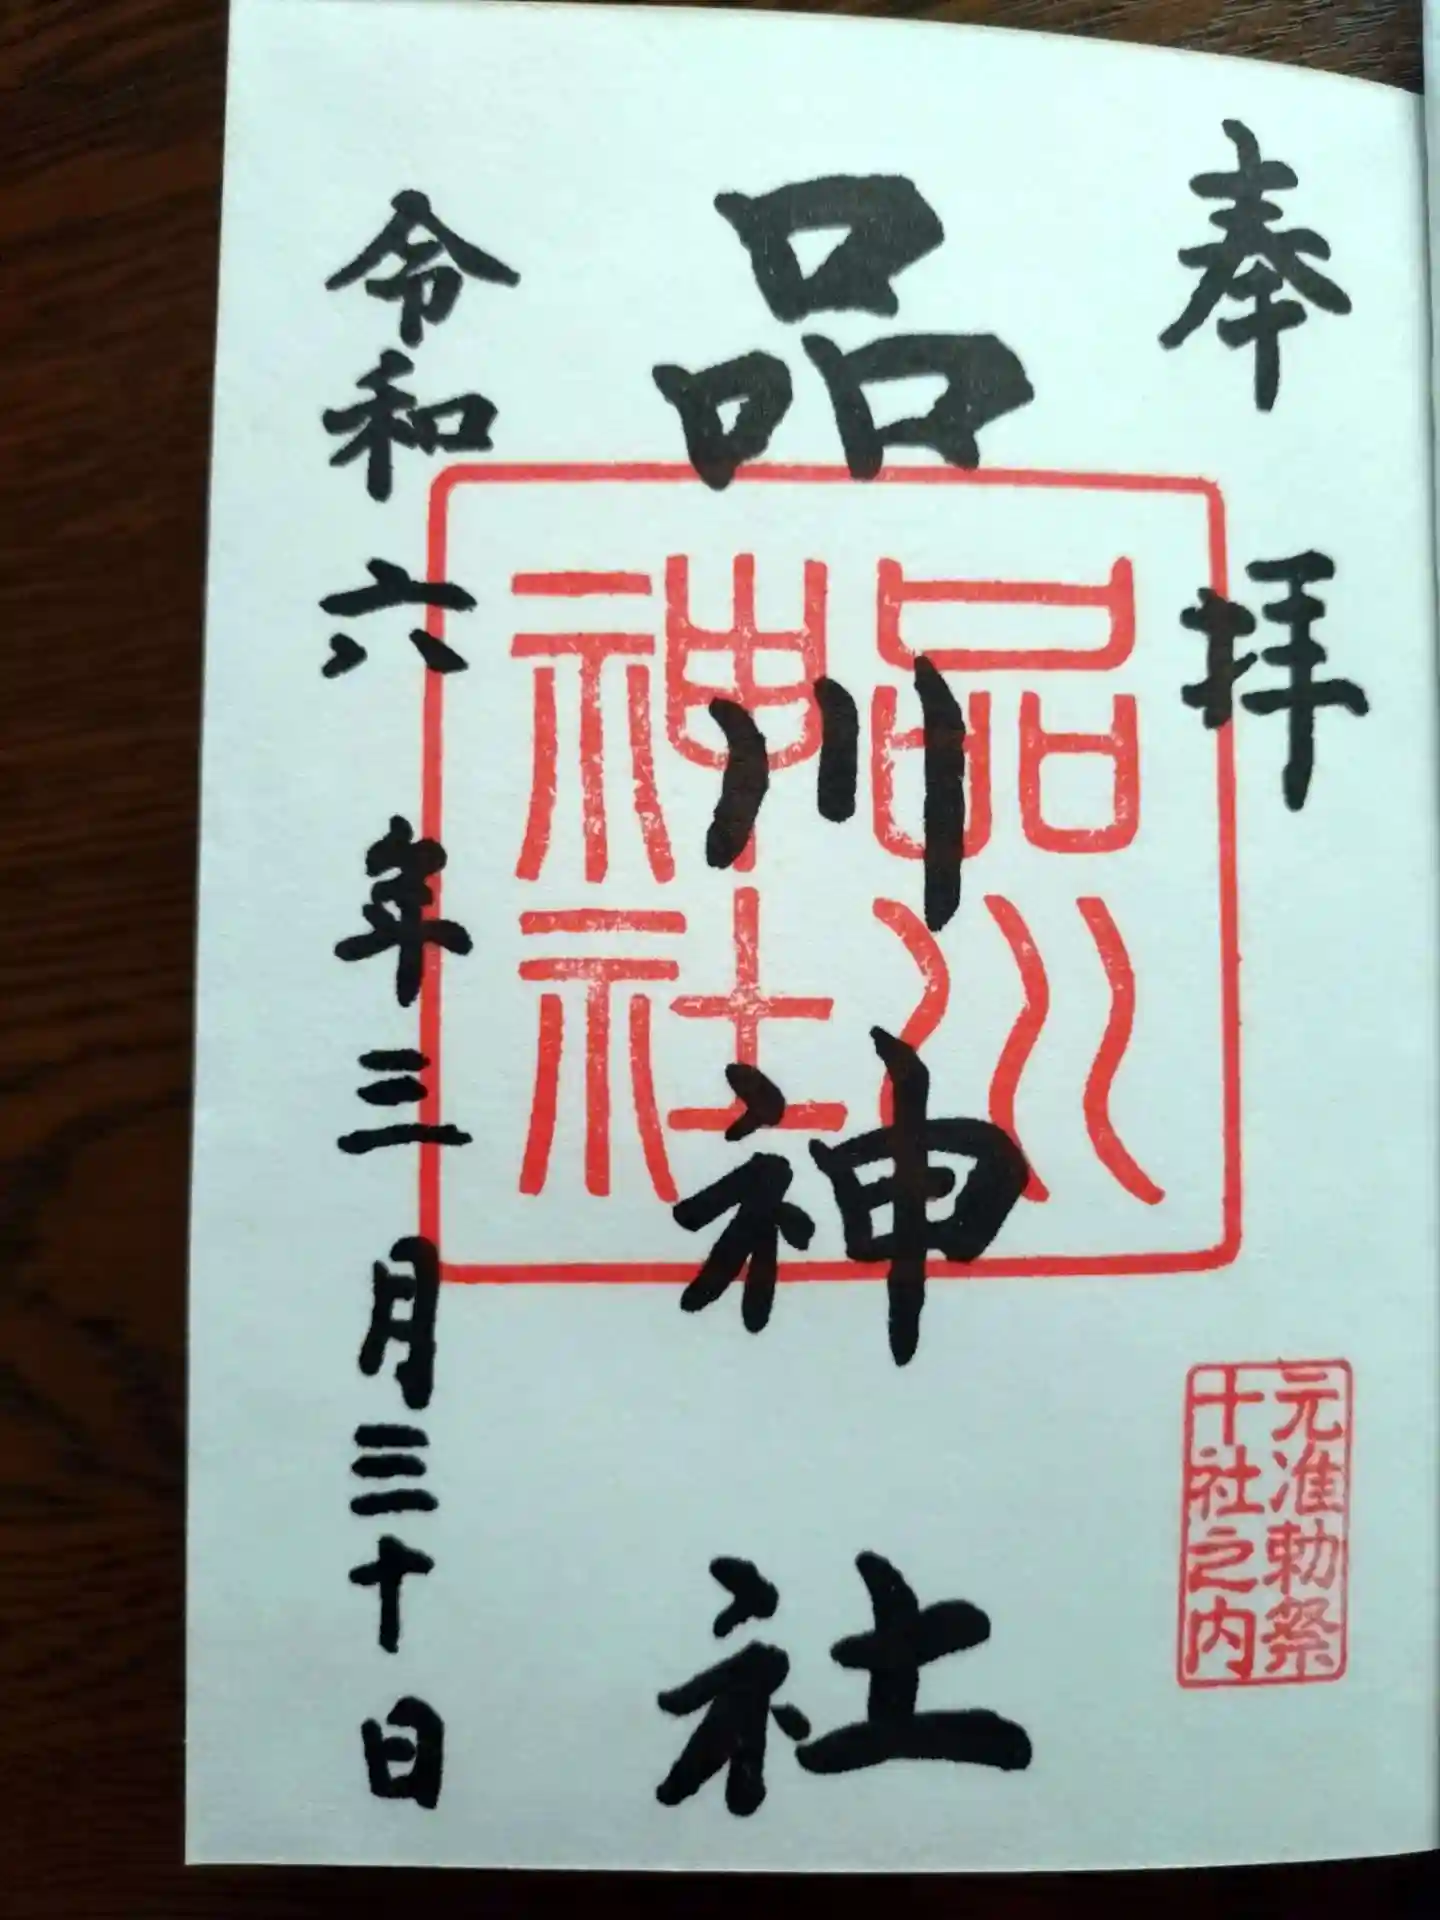 奉拝
元准勅祭
十社之内
品川神社
品川
神社
令和六年三月三十日